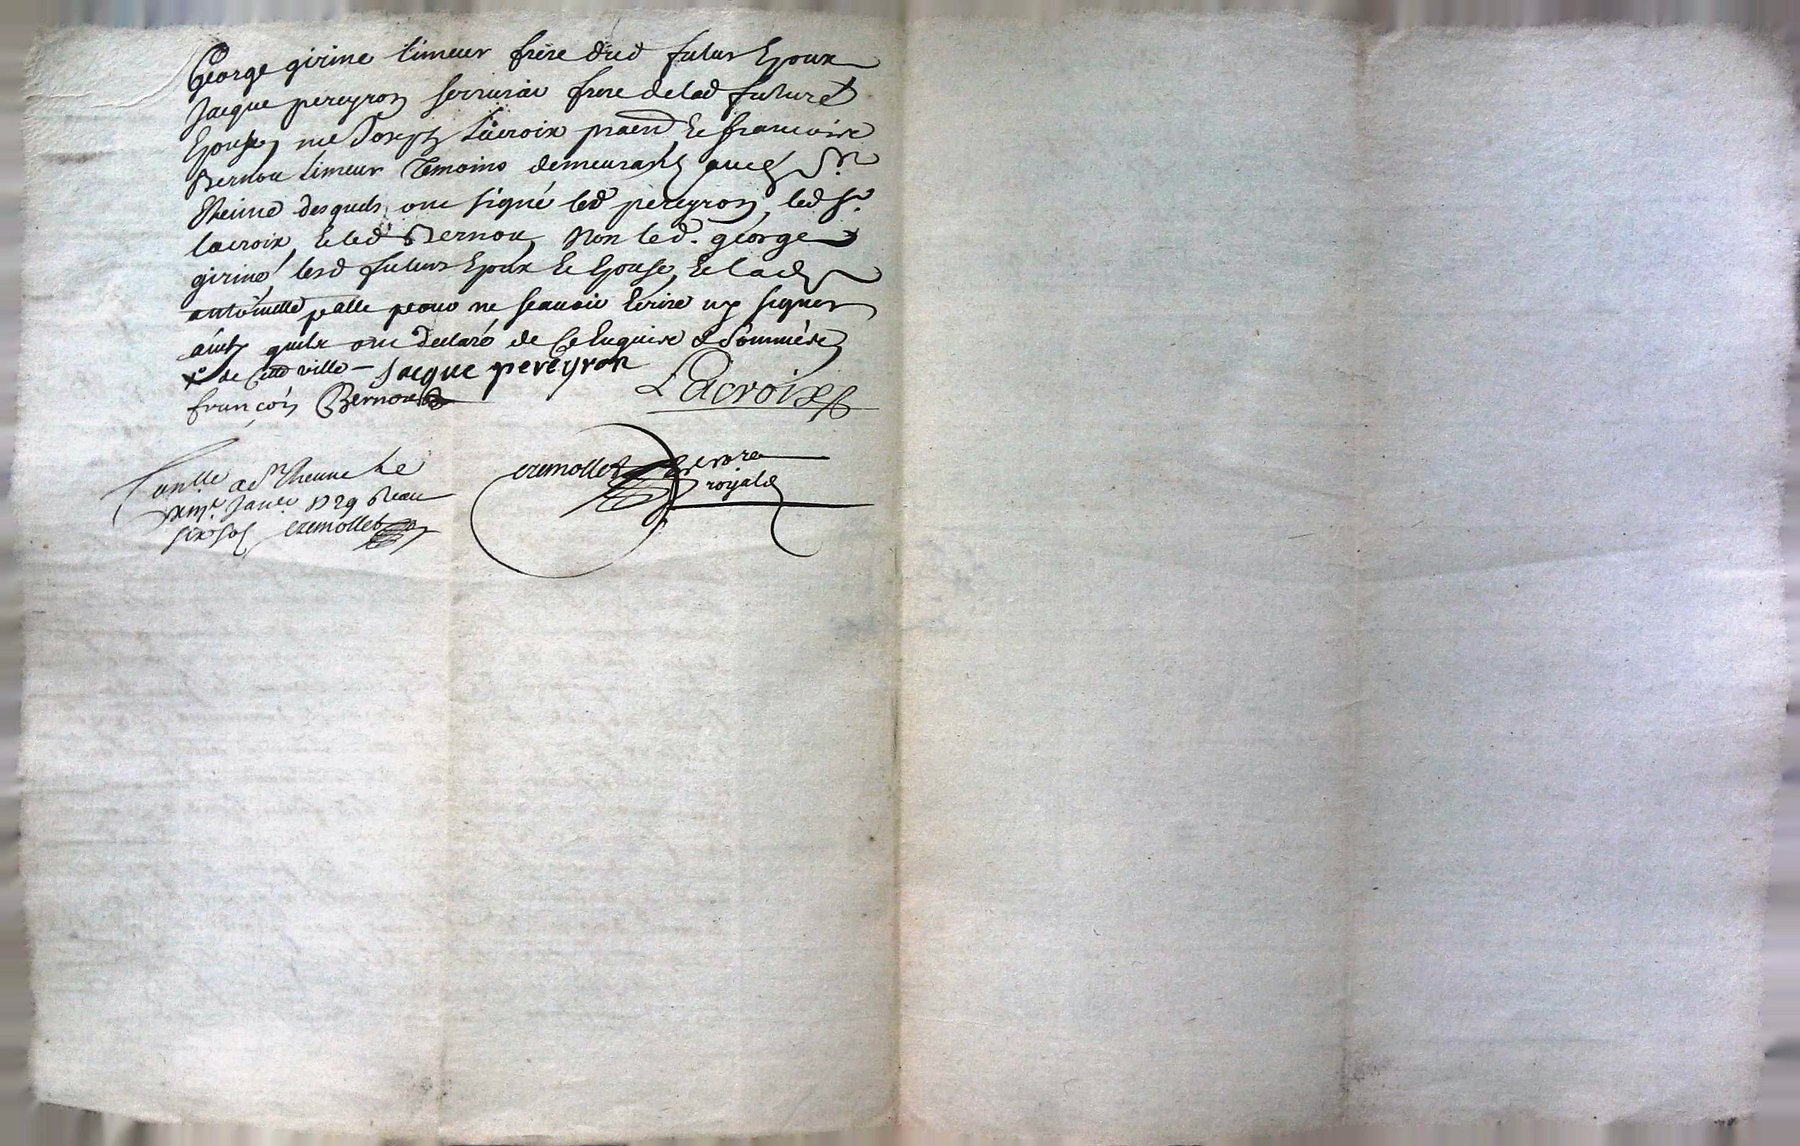 George girine limeur frere dud futur Epoux
Jacque pereyron serrurier frere de lad future
Epouse, me Joseph Lacroix praen et francoise
Bernou limeur Temoins demeurants aud St
Etienne desquels ont signé led pereyron, led Sr
lacroix, et led Bernou, Non led. george
girine, lesd futurs Epoux et Epouse, et lad
antoinette palle pour ne scavoir Ecrire ny signer
ainsy quils ont declaré de ce Enquis & Sommés
de cette ville - Jacque pereyron
françois Bernou Lacroix
cremollet nore
royal
Conllé a St Etienne le
Janer 1729 Receu
six sols cremollet